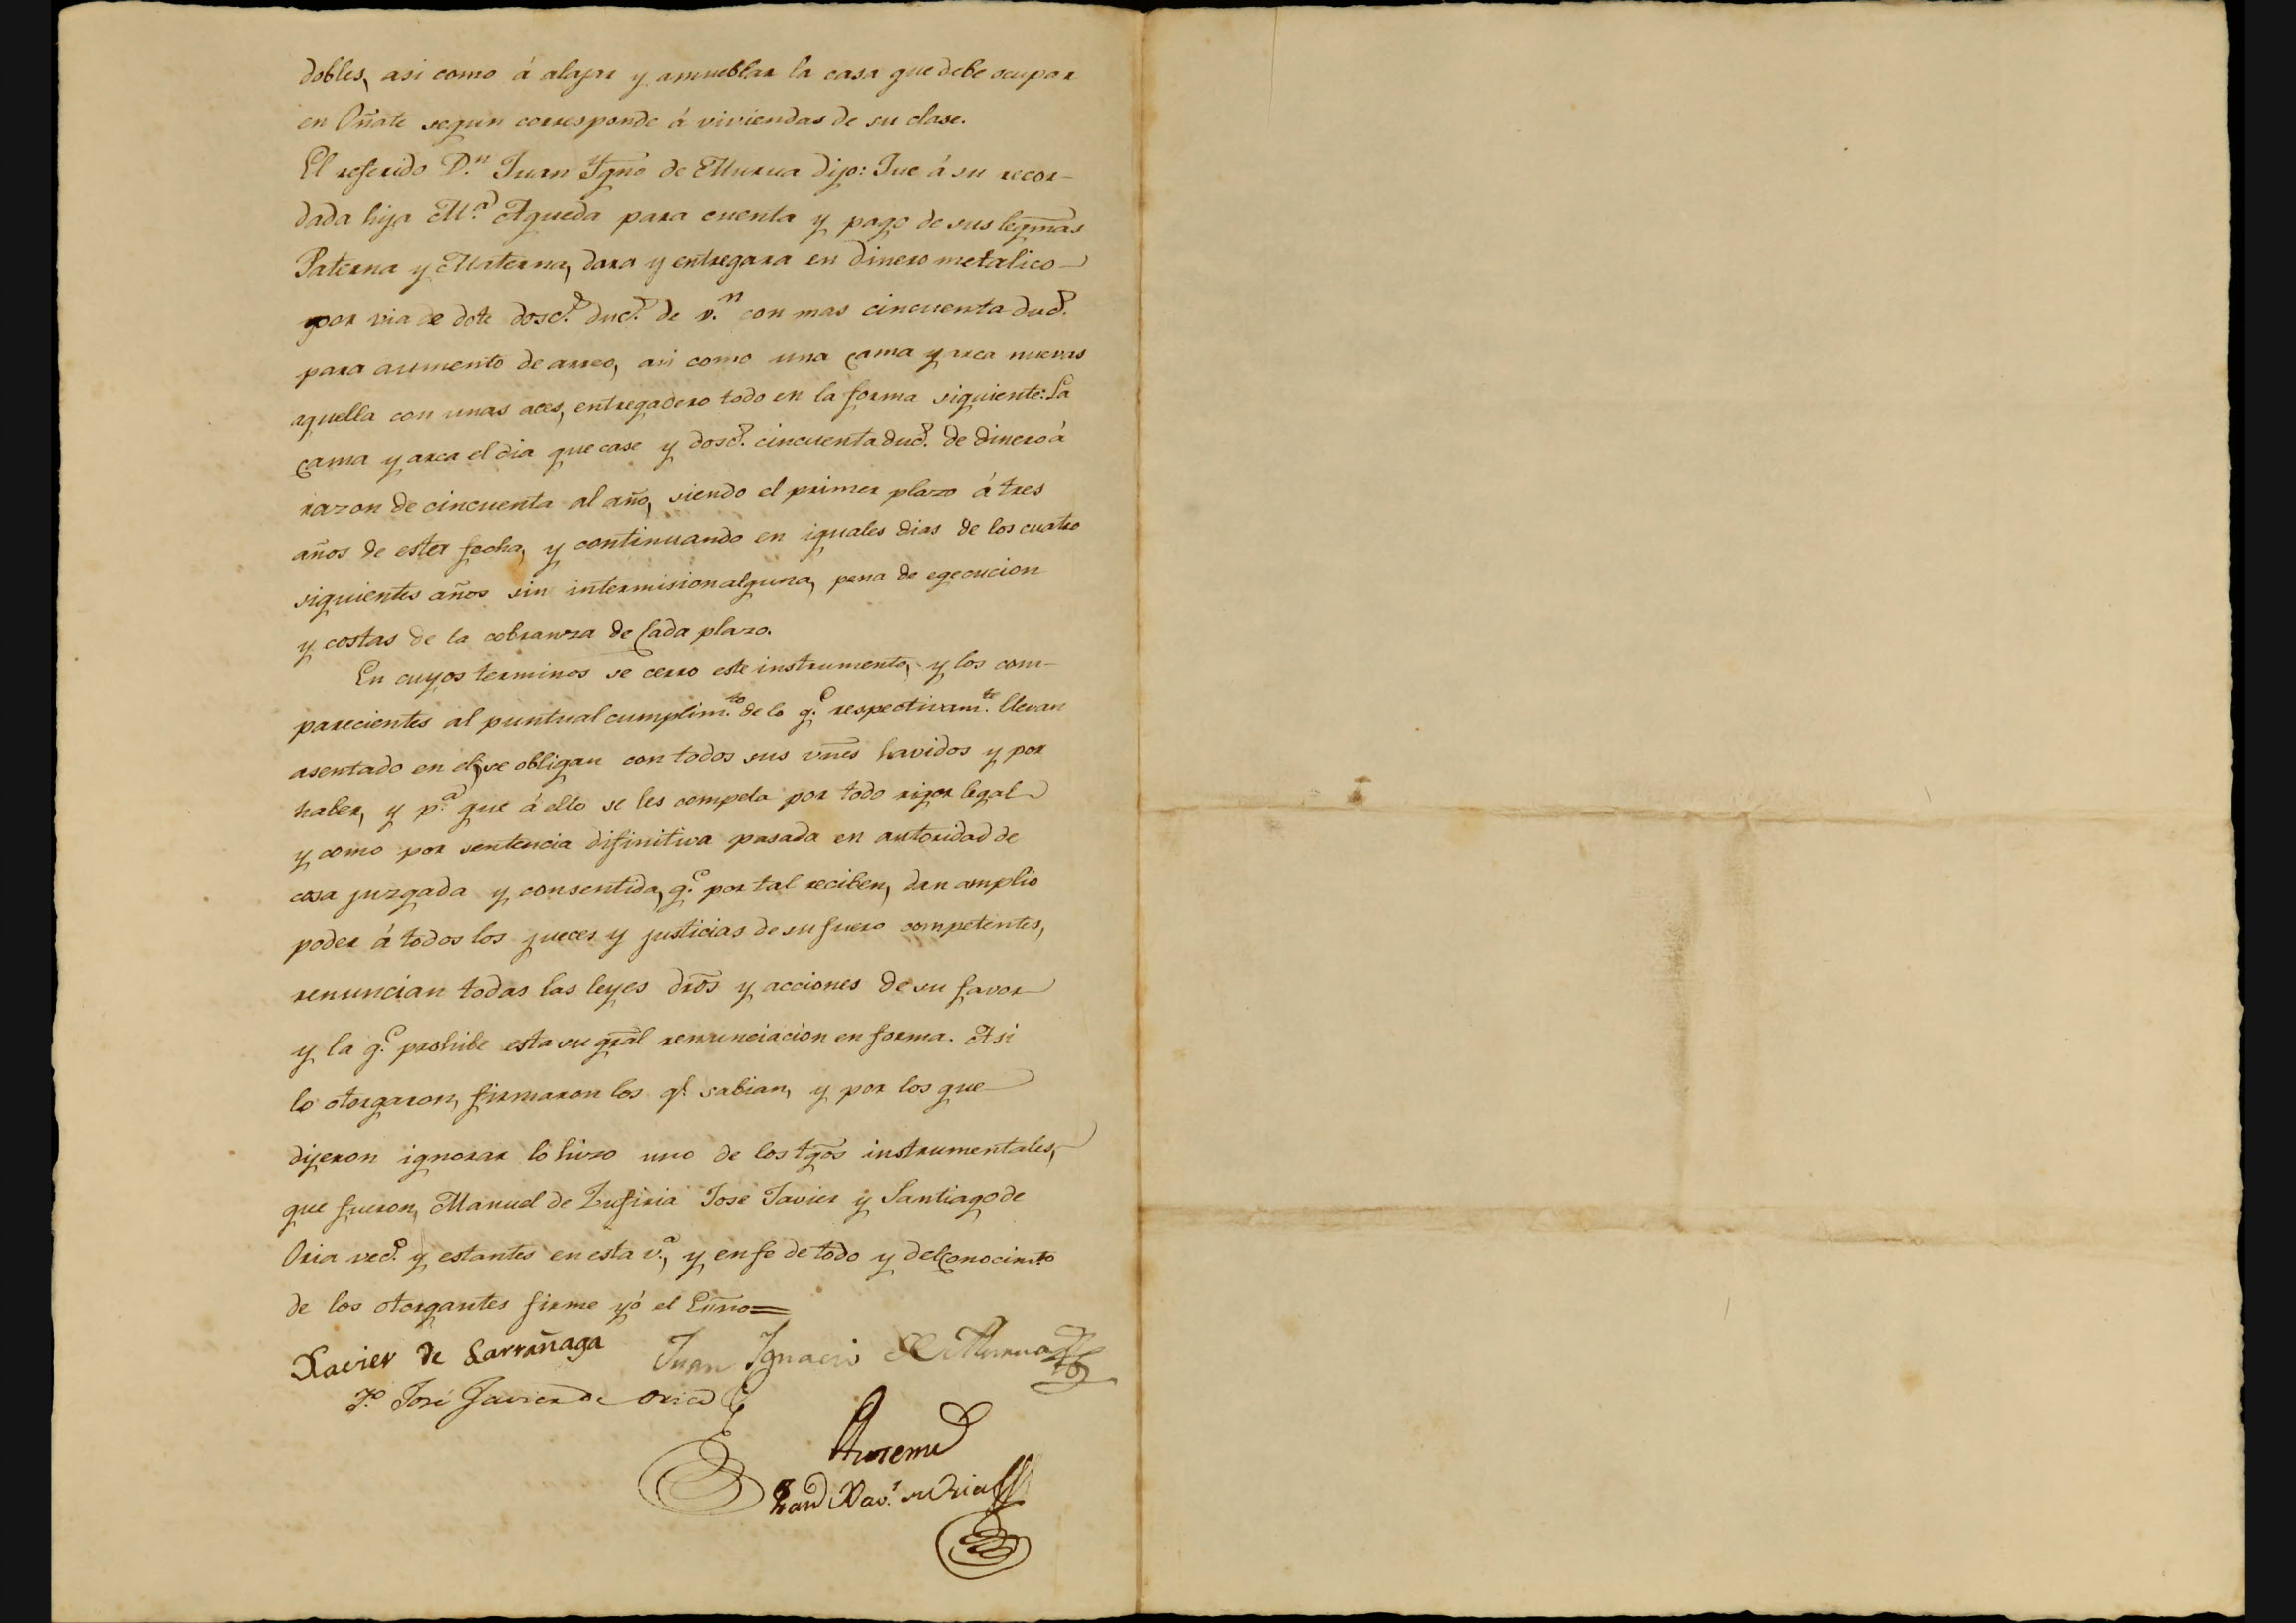 dobles, asi como á alajar y amueblar la casa que debe ocupar
en Oñate segun corresponde á viviendas de su clase.
El referido D.ⁿ Juan Ygno de Murua dijo: Que á su recor-
dada hija M.ª Agueda para cuenta y pago de sus legmas
Paterna y Materna, dara y entregara en dinero metalico
por via de dote dosc.ˢ duc.ˢ de v.ⁿ con mas cincuenta duc.ˢ
para aumento de arreo, asi como una cama y arca nuevas
aquella con unas aces, entregadero todo en la forma siguiente: La
cama y arca el dia que case y dosc.ˢ cincuenta duc.ˢ de dinero á
razon de cincuenta al año, siendo el primer plazo á tres
años de esta fecha, y continuando en iguales dias de los cuatro
siguientes años sin intermision alguna, pena de egecucion
y costas de la cobranza de Cada plazo.
En cuyos terminos se cerro este instrumento, y los com-
parecientes al puntual cumplim.ᵗᵒ de lo q.ᵉ respectivam.ᵗᵉ llevan
asentado en el, se obligan con todos sus vnes havidos y por
haber, y p.ª que á ello se les compela por todo rigor legal
y como por sentencia difinitiva pasada en autoridad de
cosa juzgada y consentida, q.ᵉ por tal reciben, dan amplio
poder á todos los jueces y justicias de su fuero competentes,
renuncian todas las leyes dros y acciones de su favor
y la q.ᵉ prohibe esta su gral renunciacion en forma. Asi
lo otorgaron, firmaron los q.ᵉ sabian, y por los que
dijeron ignorar lo hizo uno de los tgos instrumentales,
que fueron, Manuel de Zufiria Jose Javier y Santiago de
Oria vec.ˢ y estantes en esta v.ª, y en fe de todo y del Conocimto
de los otorgantes firme yó el Esño=
Xavier de Larrañaga Juan Ygnacio de Murua
T.º José Javier de Oria
Antemi
Xav.ʳ de Oria